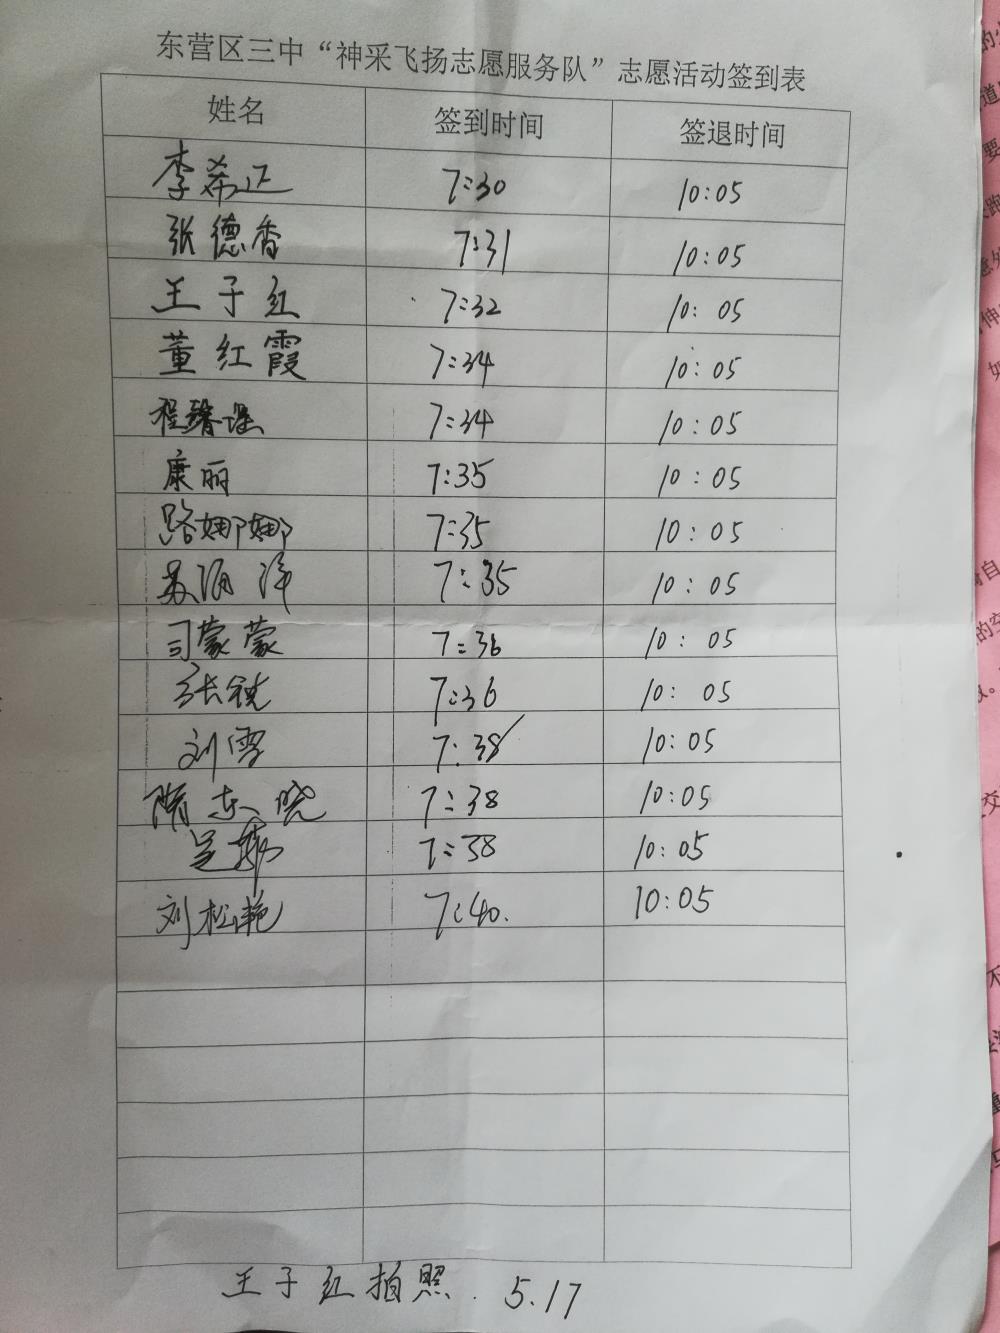 东营区三中“神采飞扬志愿服务队”志愿活动签到表
姓名 签到时间 签退时间
李希正 7:30 10:05
张德香 7:31 10:05
王子红 7:32 10:05
董红霞 7:34 10:05
7:34 10:05
康丽 7:35 10:05
路娜娜 7:35 10:05
苏洋 7:35 10:05
司蒙蒙 7:36 10:05
张 7:36 10:05
刘雪 7:38 10:05
隋东晓 7:38 10:05
7:38 10:05
刘松艳 7:40. 10:05
王子红拍照. 5.17